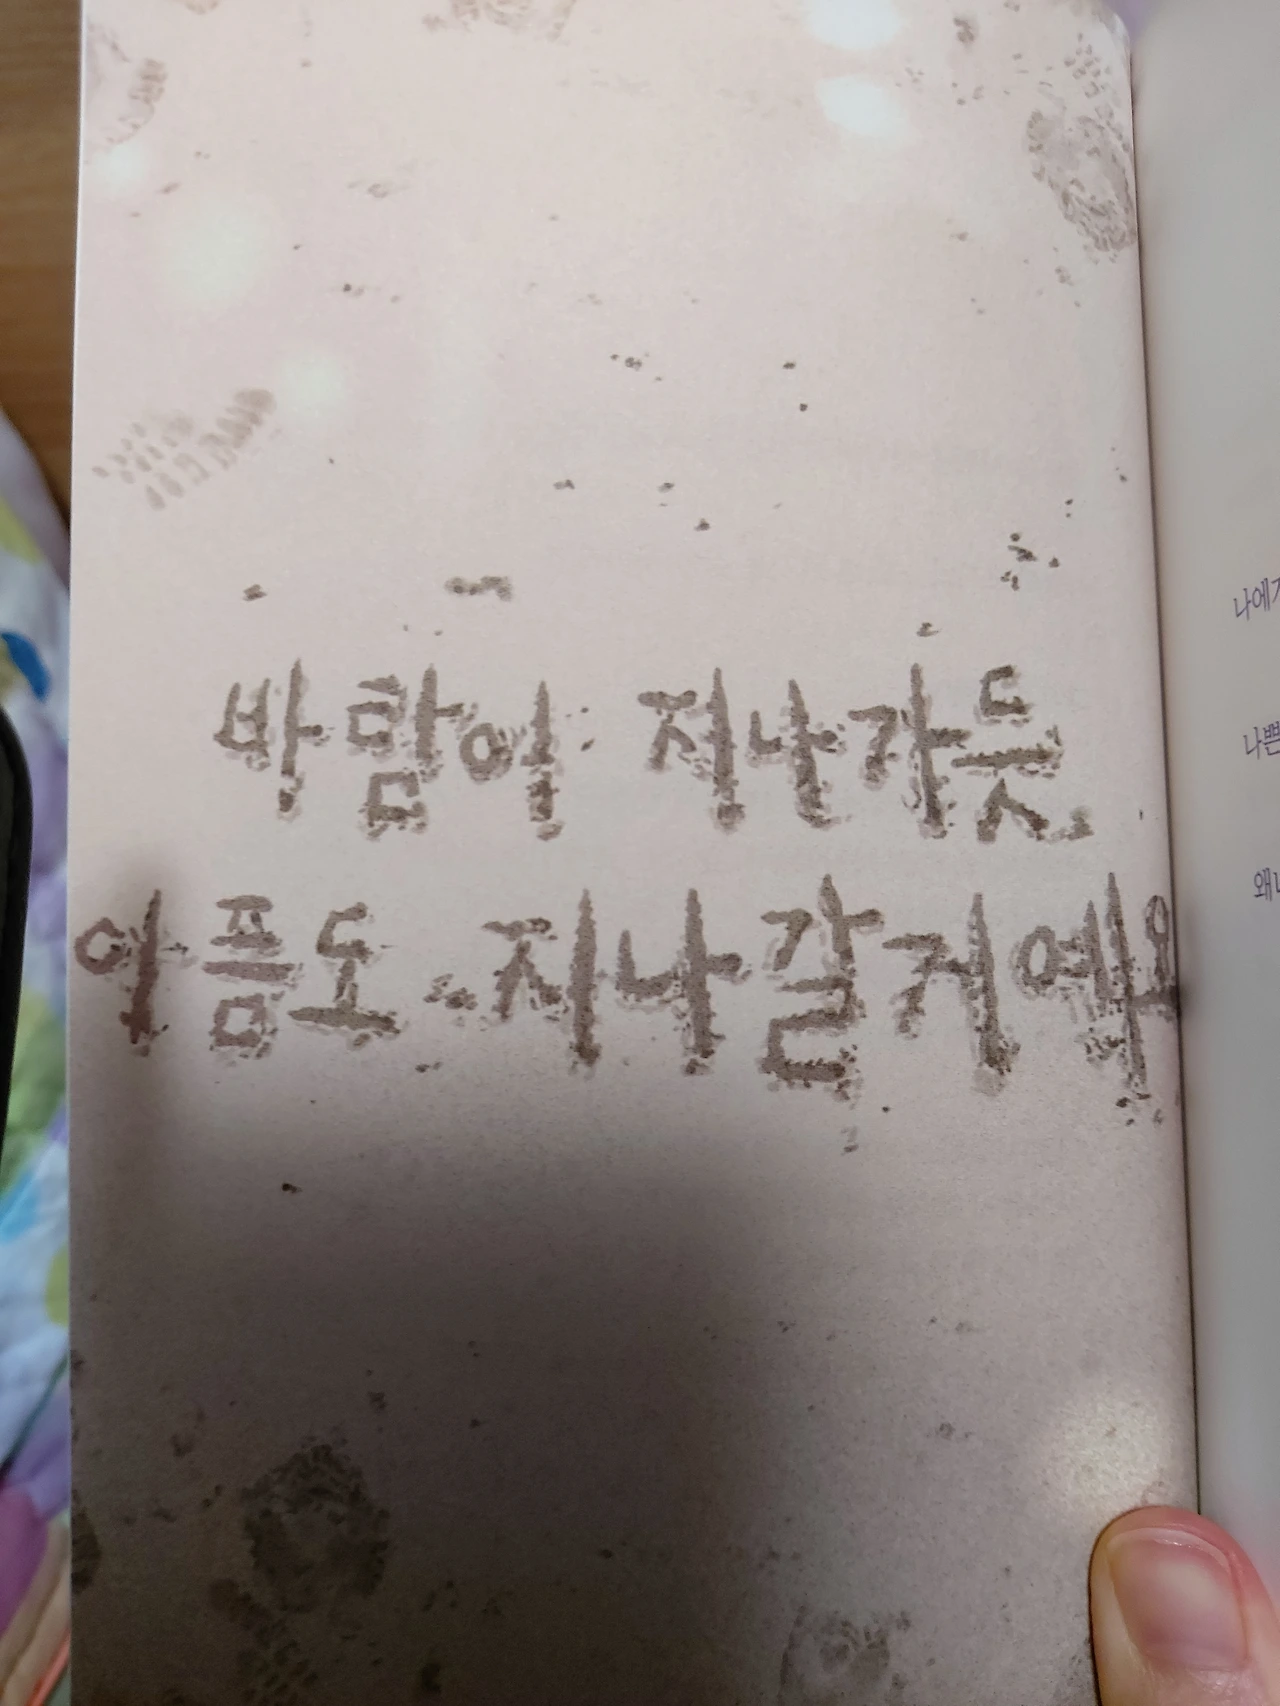 바람이 지나가듯
아픔도 지나갈거예요
나쁜